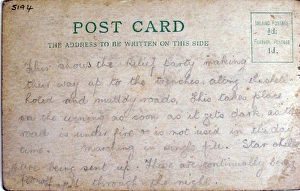 5194
POST CARD
THE ADDRESS TO BE WRITTEN ON THIS SIDE
INLAND POSTAGE
½d.
FOREIGN POSTAGE
1d.
This shows the relief party making
their way up to the trenches along the shell-
holed and muddy roads, this takes place
in the evening as soon as it gets dark, as the
road is under fire & is not used in the day
time. Marching in single file. Star shells
are being sent up. These are continually being
through the night.